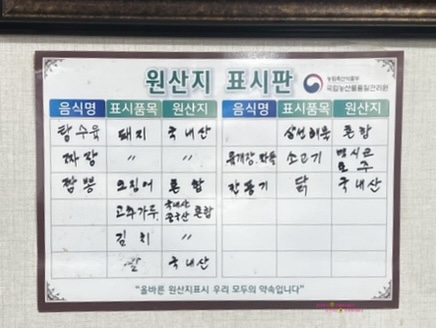 원산지 표시판
농림축산식품부
국립농산물품질관리원
음식명 표시품목 원산지 음식명 표시품목 원산지
탕수육 돼지 국내산
짜장 〃 〃
짬뽕 오징어 혼합
고추가루 국내산 중국산 혼합
김치 〃
쌀 국내산
삼선해물 혼합
육개장, 만두 소고기 멕시코 호주
깐풍기 닭 국내산
"올바른 원산지표시 우리 모두의 약속입니다"